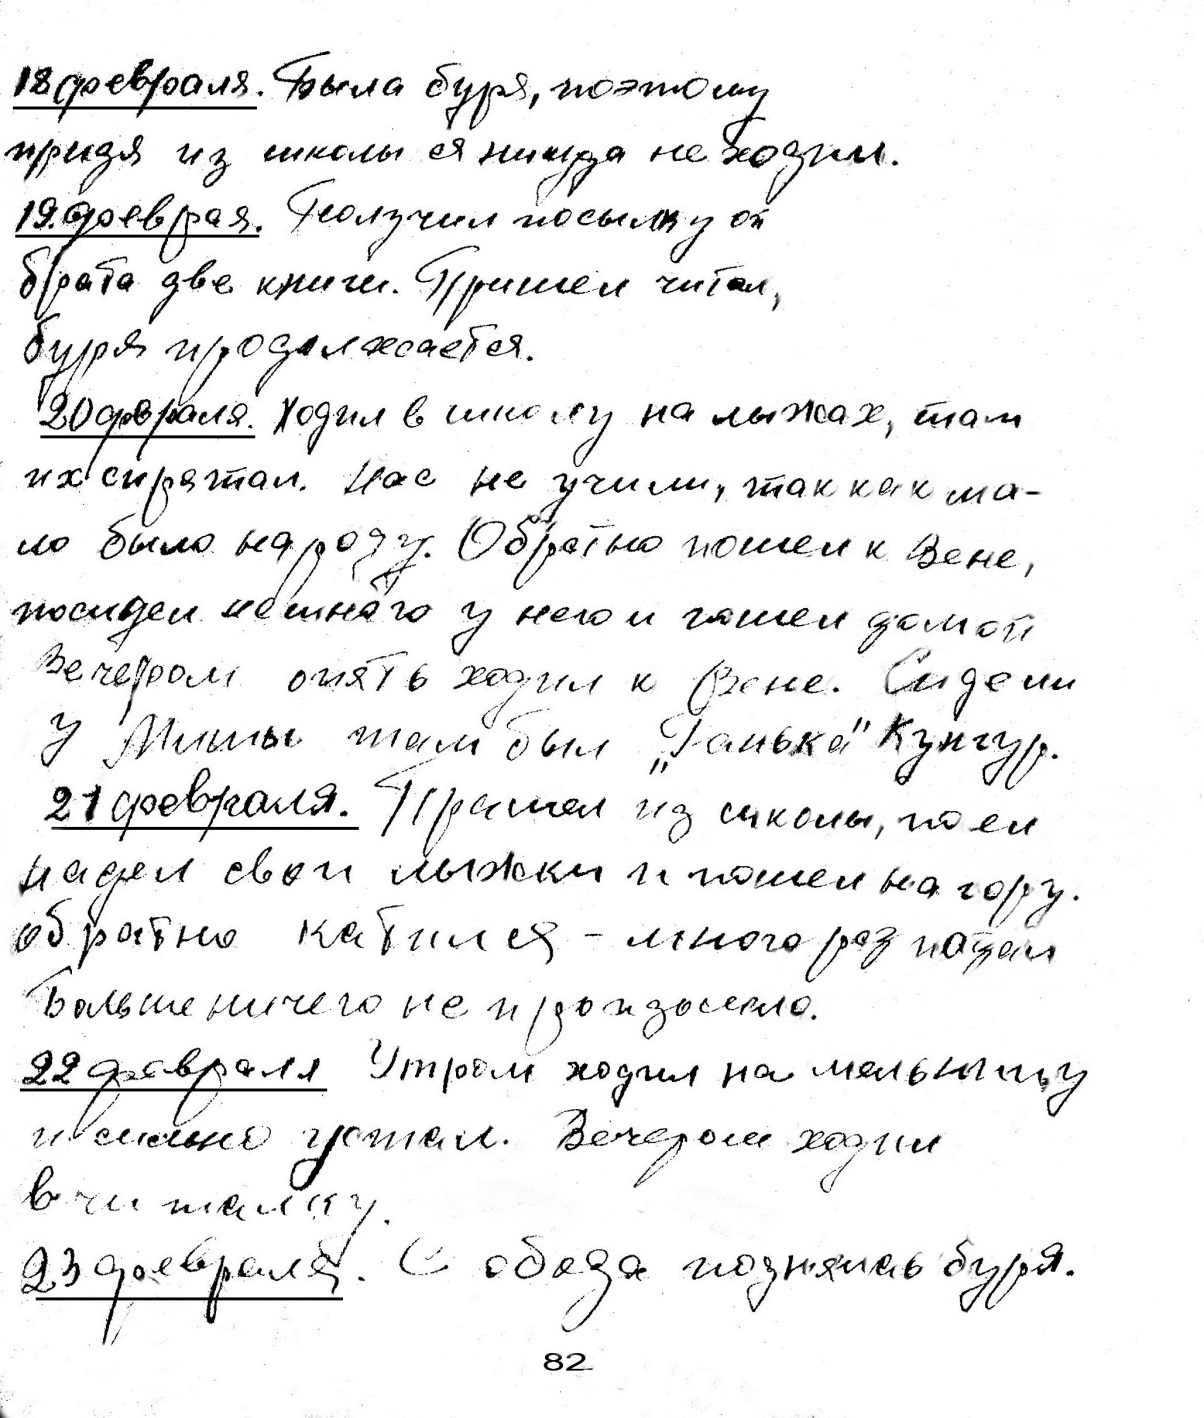 18 февраля. Была буря, поэтому
придя из школы я никуда не ходил.
19 феврая. Получил посылку от
брата две книги. Пришел читал,
буря продолжается.
20 февраля. Ходил в школу на лыжах, там
их спрятал. Нас не учили, так как ма-
ло было народу. Обратно пошел к Вене,
посидел немного у него и пошел домой
Вечером опять ходил к Вене. Сидели
у Миши там был „Ганька" Кунгур.
21 февраля. Пришел из школы, поел
надел свои лыжки и пошел на гору.
обратно катился - много раз падал
Больше ничего не произошло.
22 февраля Утром ходил на мельницу
и сильно устал. Вечером ходил
в читалку.
23 февраля. С обеда поднялась буря.
82